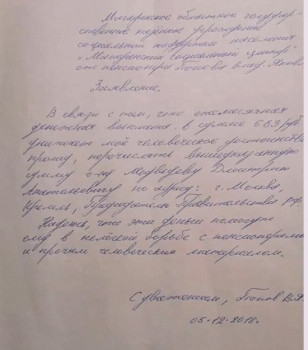 Магаданское областное государ-
ственное казенное учреждение
социальной поддержки населения
"Магаданский социальный центр"
от пенсионера Попова Влад.
Заявление.
В связи с тем, что ежемесячная
денежная выплата в сумме 583 руб
унижает моё человеческое достоинство
прошу, перечислять вышеуказанную
сумму г-ну Медведеву Дмитрию
Анатольевичу по адресу: г. Москва,
Кремль, Председателю Правительства РФ.
Надеюсь, что эти деньги помогут
ему в нелёгкой борьбе с пенсионерами
и прочим человеческим материалом.
С уважением, Попов В.Я.
05-12-2018.